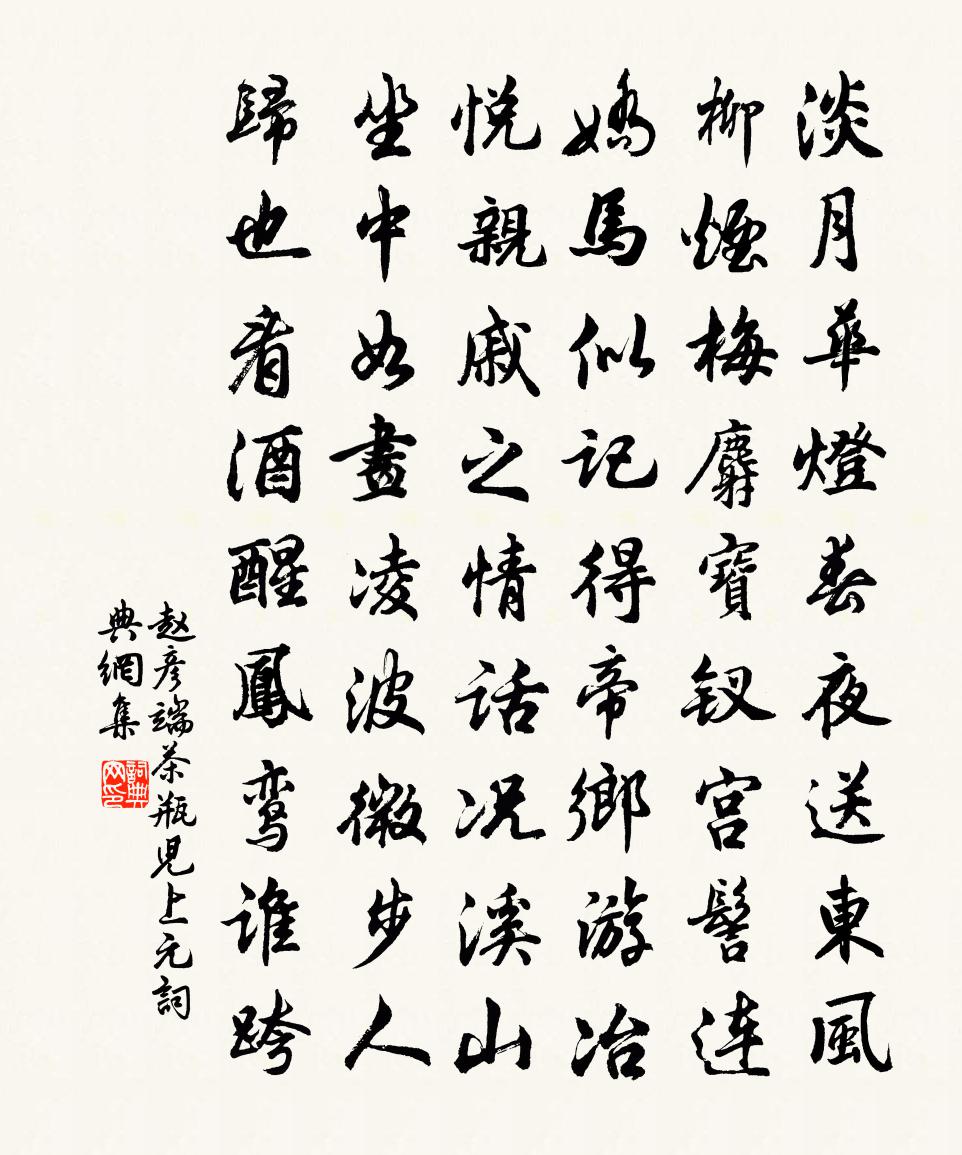 淡月華燈春夜送東風
柳煙梅麝寶钗宫髻連
嬌馬似記得帝鄉游冶
悦親戚之情話况溪山
坐中如畫凌波微步人
歸也看酒醒鳳鸾谁跨
赵彦端茶瓶児上元詞
典網集
詞典网印